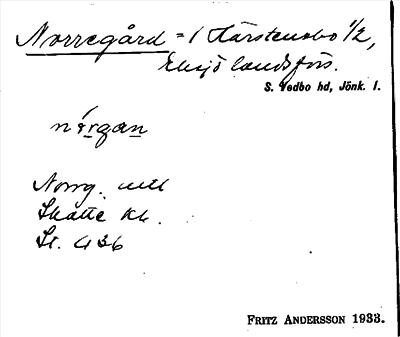 Norregård = 1 Karstensbo 1/2,
Eksjö landsförs.
S. Vedbo hd, Jönk. l.
nórgan
Norrg. utel
Skatte Kb.
St. 436
FRITZ ANDERSSON 1933.